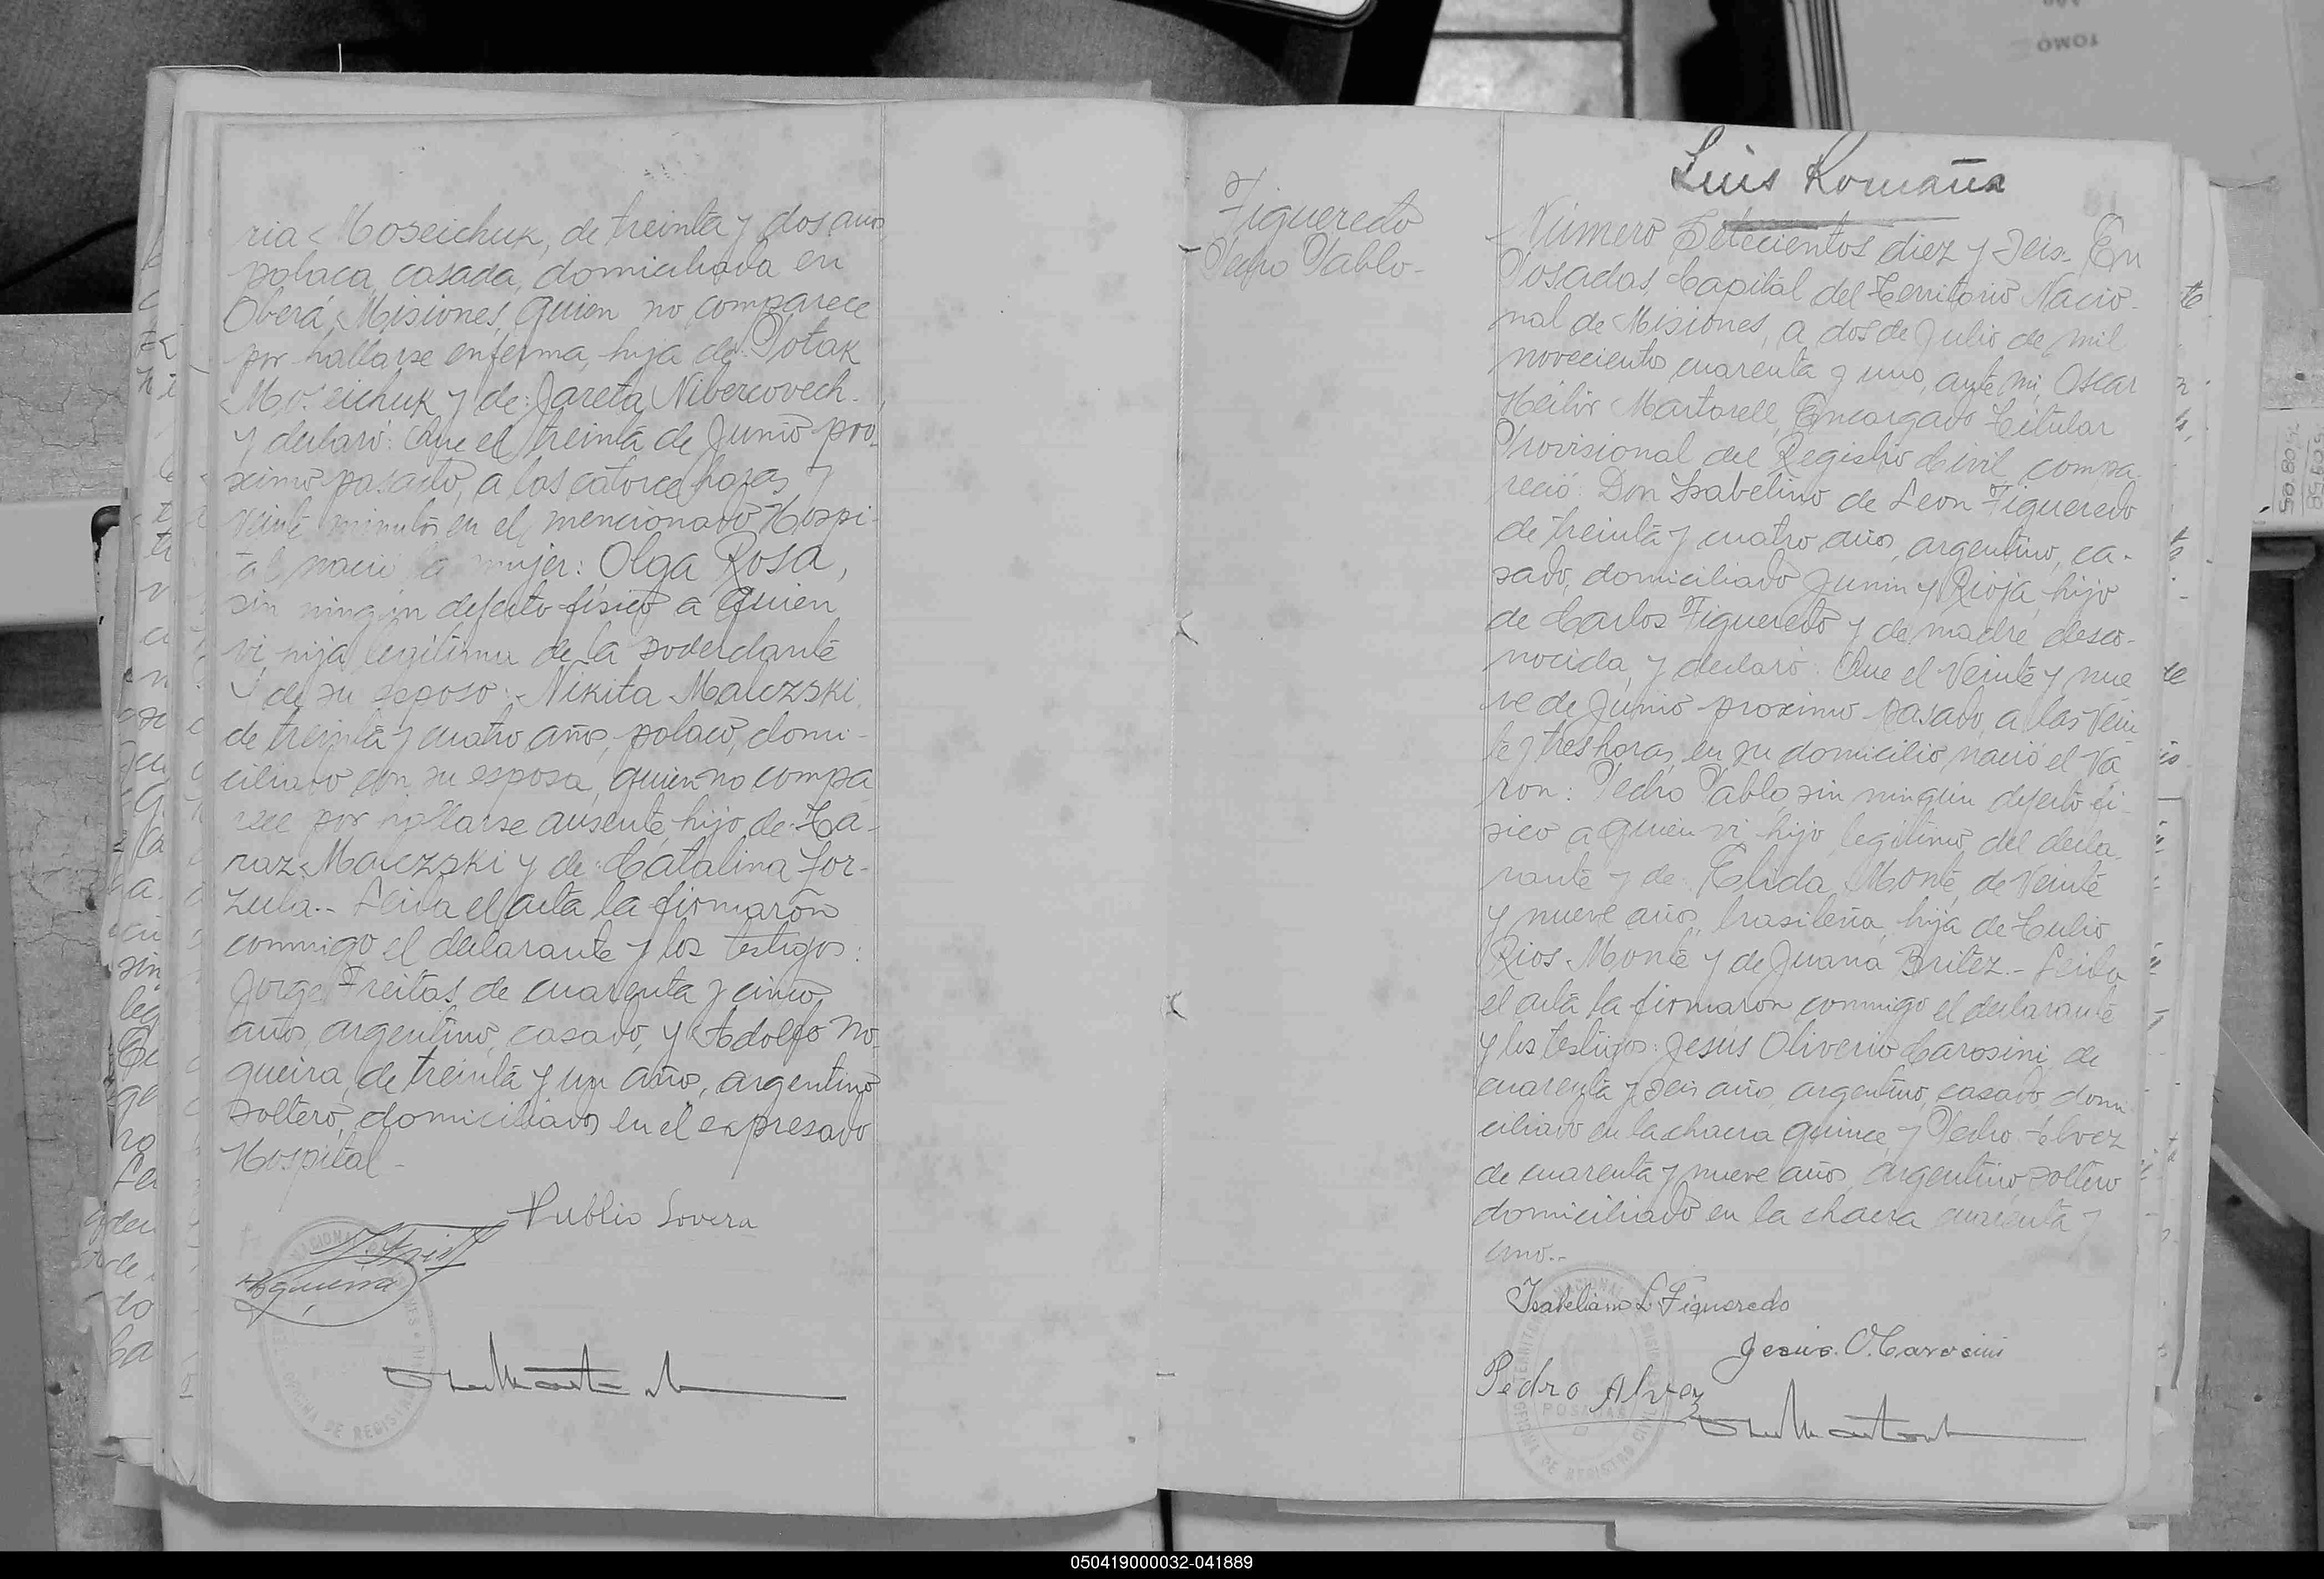 ria Moseichuk, de treinta y dos años
polaca, casada, domiciliada en
Oberá, Misiones, quien no comparece
por hallarse enferma, hija de: Potak
Moseichuk y de: Jareta Nibercovech.
y declaró: Que el treinta de Junio pro-
ximo pasado, a las catorce horas y
veinte minutos en el mencionado Hospi-
tal nació la mujer: Olga Rosa,
sin ningún defecto físico a quien
vi, hija legitima de la poderdante
y de su esposo: Nikita Malczski,
de treinta y cuatro años, polaco, domi-
ciliado con su esposa, quien no compa
rece por hallarse ausente, hijo de: Ta-
raz Malczski y de: Catalina Jor-
zula.- Leida el acta la firmaron
conmigo el declarante y los testigos:
Jorge Freitas, de cuarenta y cinco
años, argentino, casado, y Adolfo No-
gueira, de treinta y un año, argentino
soltero, domiciliados en el expresado
Hospital-
Publio Lovera
Nogueira
OFICINA DE REGISTRO
Figueredo
Pedro Pablo-
Luis Romaña
Número Setecientos diez y seis- En
Posadas, Capital del Territorio Nacio-
nal de Misiones, a dos de Julio de mil
novecientos cuarenta y uno, ante mi, Oscar
Héctor Martorell, Encargado Titular
Provisional del Registro Civil, compa-
reció: Don Isabelino de Leon Figueredo
de treinta y cuatro años, argentino, ca-
sado, domiciliado Junin y Rioja, hijo
de Carlos Figueredo y de madre desco-
nocida, y declaró: Que el Veinte y nue
ve de Junio proximo pasado, a las Vein
te y tres horas, en su domicilio, nació el Va
ron: Pedro Pablo, sin ningún defecto fi-
sico a quien vi, hijo legitimo del decla-
rante y de: Elida Monte, de Veinte
y nueve años, brasileña, hija de Tulio
Rios Monte y de Juana Britez.- Leida
el acta la firmaron conmigo el declarante
y los testigos: Jesús Oliverio Carosini, de
cuarenta y seis años, argentino, casado, domi-
ciliado en la chacra quince, y Pedro Alvez
de cuarenta y nueve años, argentino, soltero
domiciliado en la chacra cuarenta y
uno.-
Isabelino L. Figueredo
Jesús. O. Carosini
Pedro Alvez
POSADAS
OFICINA DE REGISTRO CIVIL
TOMO
050419000032-041889